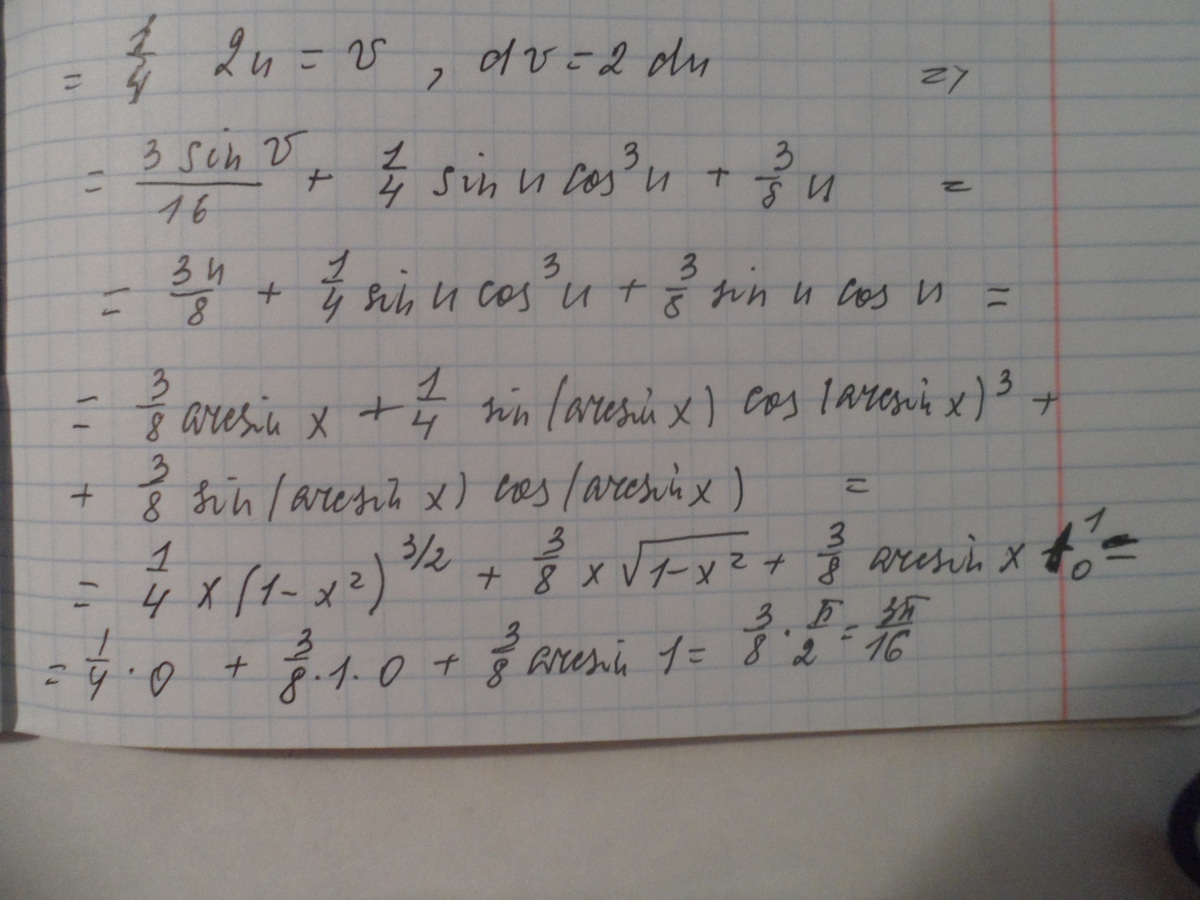 = 1/4 2u = v , dv = 2 du =>
= 3 sin v/16 + 1/4 sin u cos³u + 3/8 u =
= 3u/8 + 1/4 sin u cos³u + 3/8 sin u cos u =
= 3/8 arcsin x + 1/4 sin(arcsin x) cos(arcsin x)³ +
+ 3/8 sin(arcsin x) cos(arcsin x) =
= 1/4 x(1-x²)^3/2 + 3/8 x√(1-x²) + 3/8 arcsin x |₀¹ =
= 1/4 · 0 + 3/8 · 1 · 0 + 3/8 arcsin 1 = 3/8 · π/2 = 3π/16